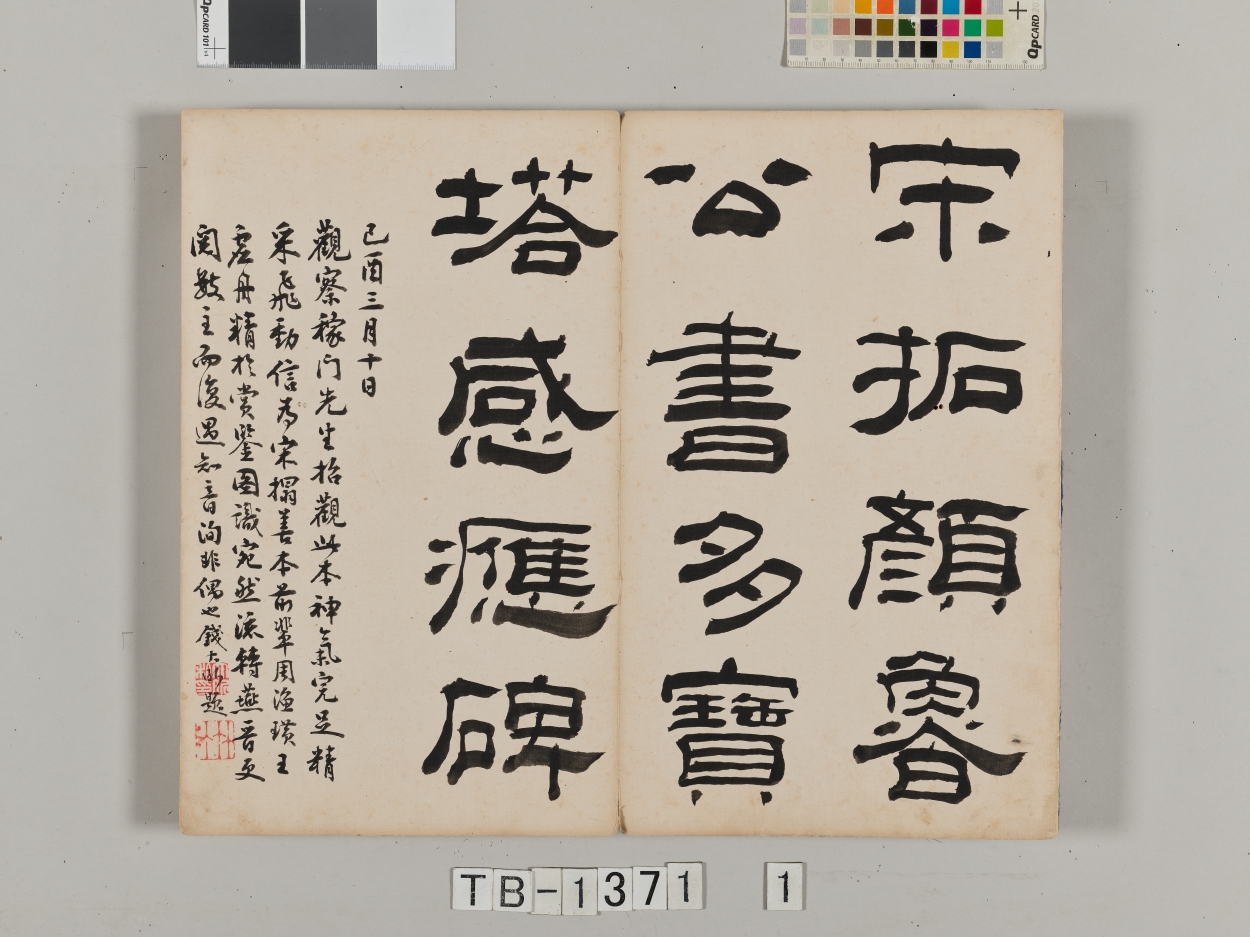 宋拓顏魯
公書多寶
塔感應碑
己酉三月十日
觀察稼门先生招觀此本神氣完足精
采飛動信為宋搨善本前輩周漁璜王
虛舟精於賞鑒圖識宛然流轉燕晋更
閱數主而復遇知音洵非偶也錢大昕題
TB-1371 1
QpCARD 101
QpCARD